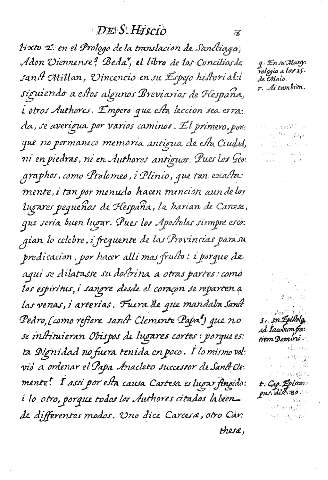 DE S. Hiscio
sixto 2. en el Prologo de la translacion de Santiago,
Adon Viennense? Beda, el libro de los Concilios de
sanct Millan, Vincencio en su Espejo historial: i
siguiendo a estos algunos Breviarios de Hespaña,
i otros Authores. Empero que esta leccion sea erra-
da, se averigua por varios caminos. El primero, por-
que no permanece memoria antigua de esta Ciudad,
ni en piedras, ni en Authores antiguos. Pues los Geo-
graphos, como Ptolomeo, i Plinio, que tan exacta-
mente, i tan por menudo hacen mencion aun de los
lugares pequeños de Hespaña, la harian de Carcesa,
que seria buen lugar. Pues los Apostolos siempre esco-
gian lo celebre, i frequente de las Provincias para su
predicacion, por hacer alli mas fruto: i porque de
aqui se dilatasse su doctrina a otras partes: como
los espiritus, i sangre desde el coraçon se reparten a
las venas, i arterias. Fuera de que mandaba Sanct
Pedro, (como refiere sanct Clemente Papa) que no
se instituieran Obispos de lugares cortos: porque es-
ta Dignidad no fuera tenida en poco. I lo mismo vol-
vió a ordenar el Papa Anacleto successor de Sanct Cle-
mente. I assi por esta causa Cartesa es lugar fingido:
i lo otro, porque todos los Authores citados la leen
de differentes modos. Uno dice Carcesæ, otro Car-
thesæ,
q. En su Martyrologio a los 15.
de Maio.
r. Ai tambien.
s. in Epistola
ad Iacobum fra-
trem Domini.
t. Cap. Episco-
pus. dist. 80.